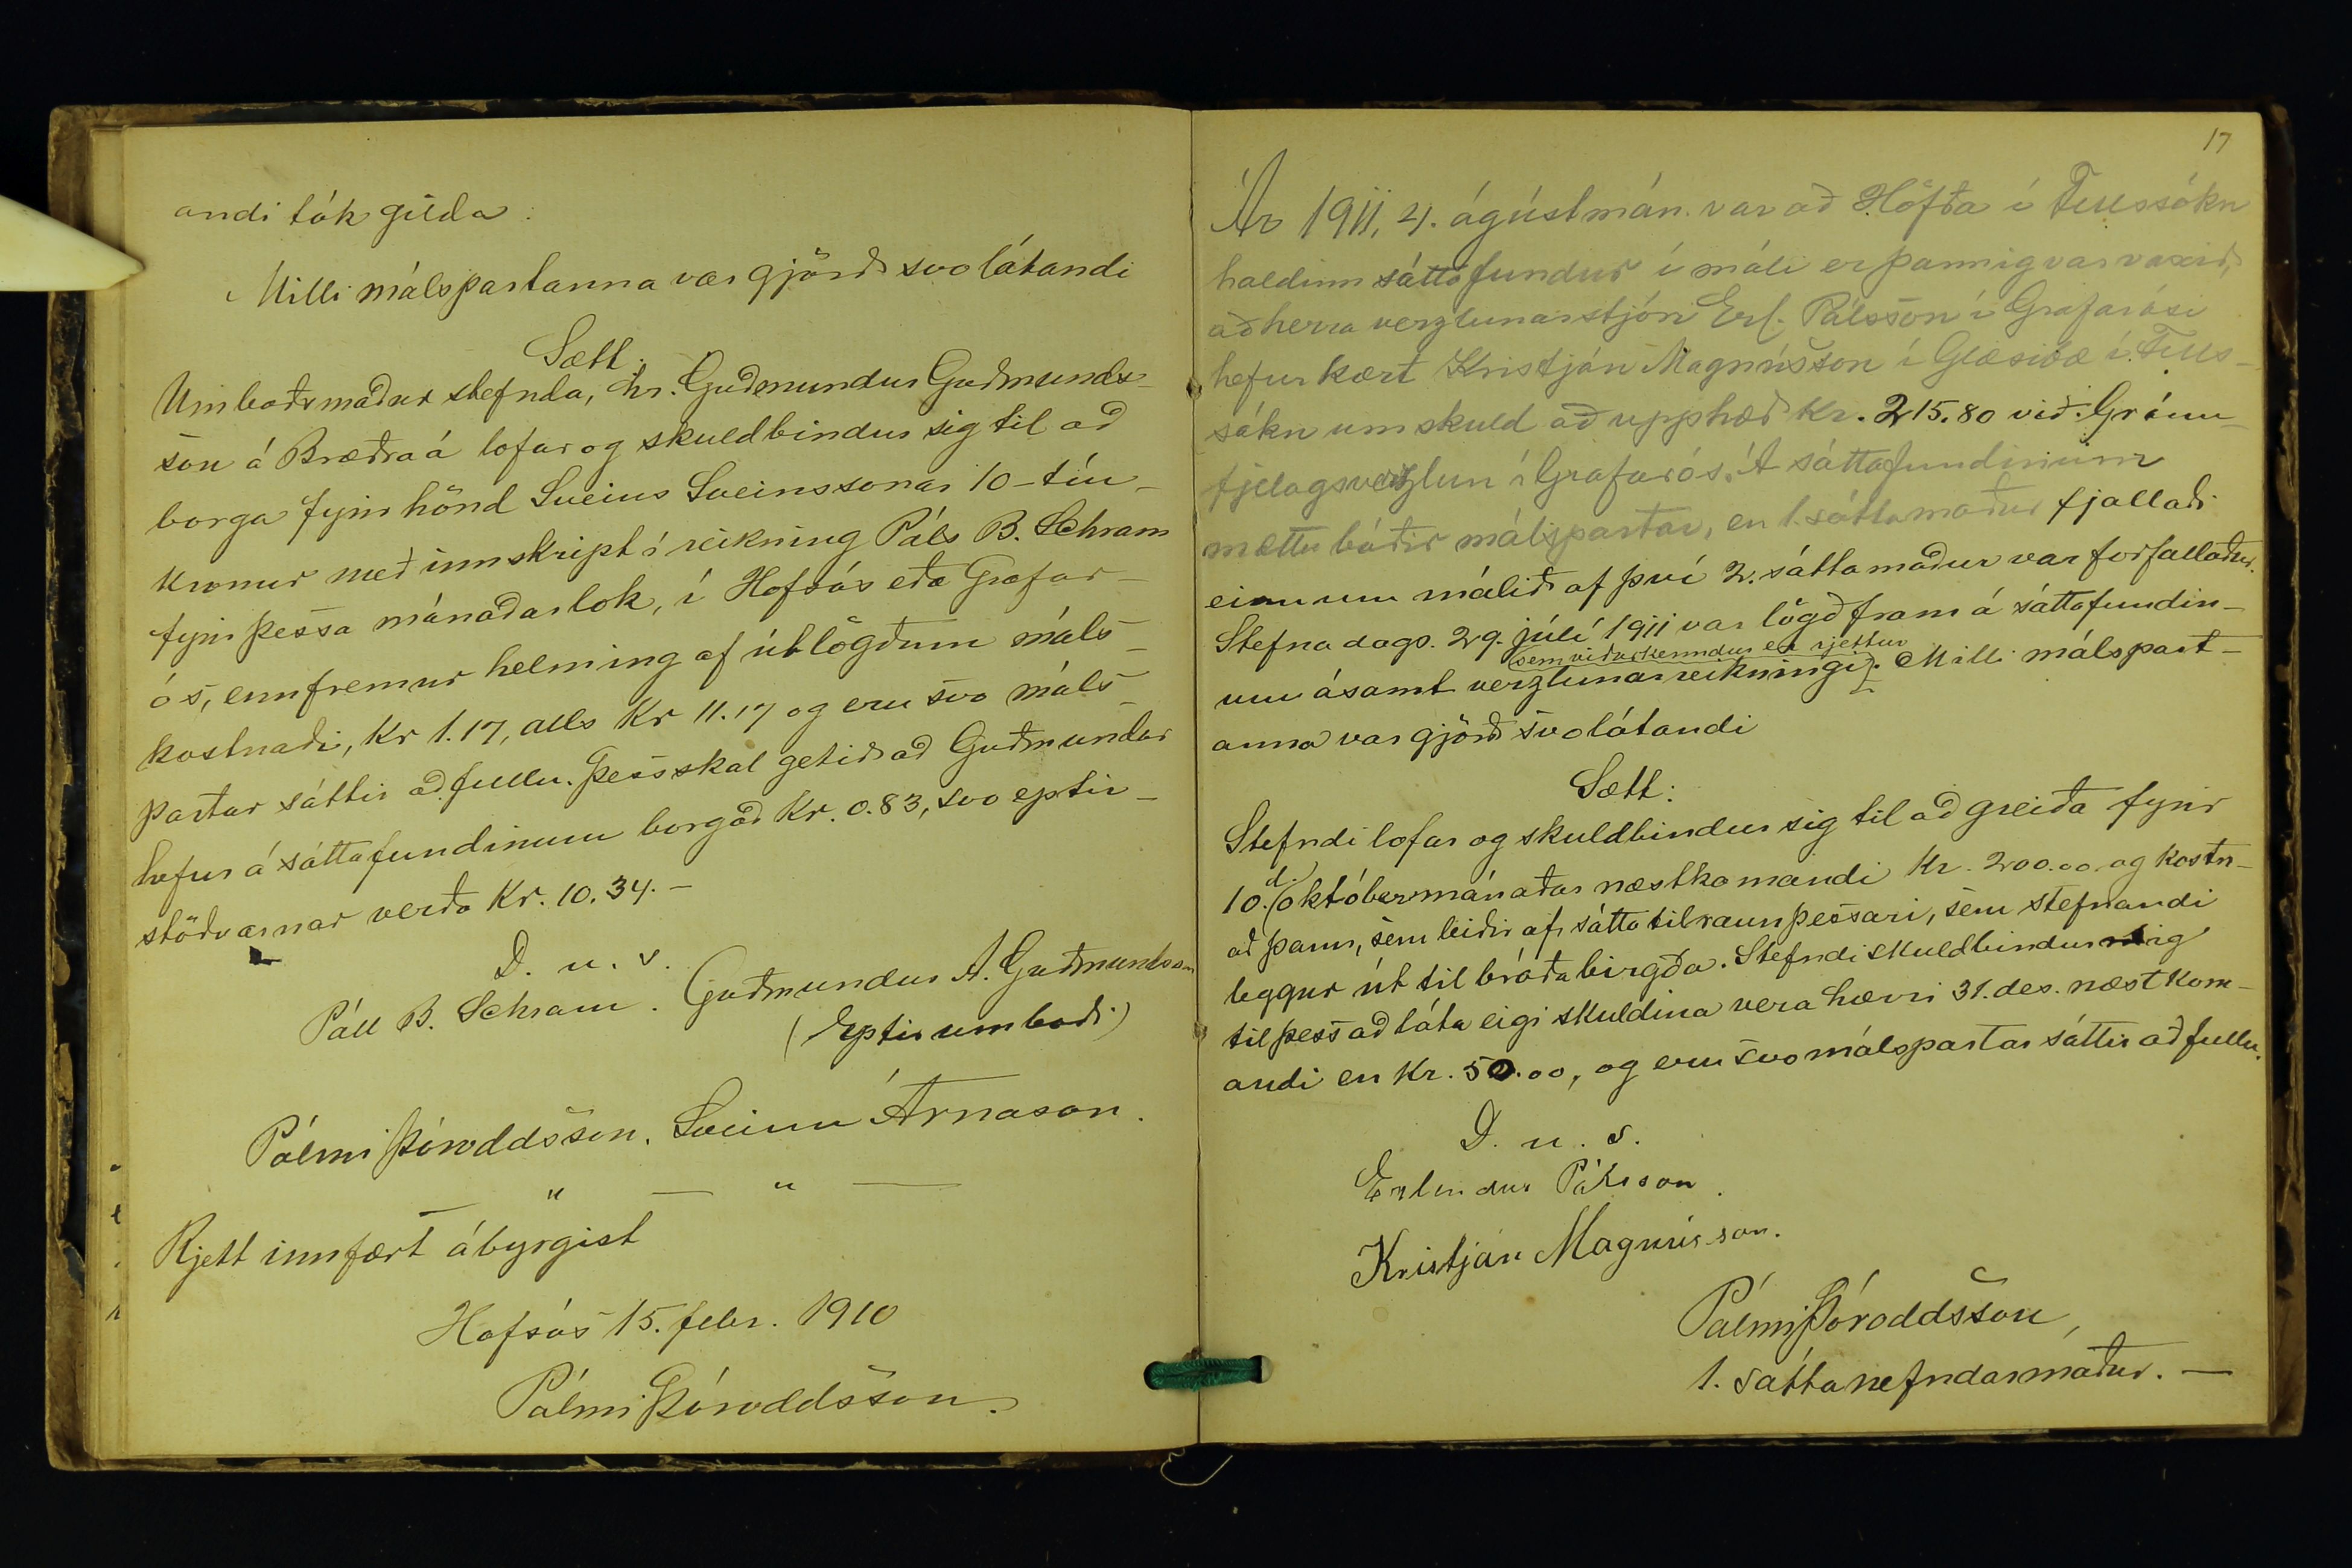 andi tók gilda:
Milli málspartanna var gjörð svolátandi
Sætt:
Umboðsmaður stefnda, hr. Guðmundur Guðmunds-
son á Bræðraá lofar og skuldbindur sig til að
borga fyrir hönd Sveins Sveinssonar 10 - tíu -
Kronur með innskript í reikning Páls B. Schram
fyrir þessa mánaðarlok, í Hofsós eða Grafar-
ós, ennfremur helming af útlögðum máls-
kostnaði, Kr 1.17, alls Kr 11.17 og eru svo máls-
partar sáttir að fullu. Þess skal getið að Guðmundur
hefur á sáttafundinum borgað Kr. 0.83, svo eptir-
stöðvarnar verða Kr. 10.34. -
D. u. s.
Páll B. Schram. Guðmundur A. Guðmundsson
(Eptir umboði)
Pálmi Þóroddsson. Sveinn Árnason.
" — " —
Rjett innfært ábyrgist
Hofsós 15. febr. 1910
Pálmi Þóroddsson.
17
Ár 1911, 4. ágústmán. var að Höfða í Fellssókn
haldinn sáttafundur í máli er þannig var vaxið,
að herra verzlunarstjóri Erl. Pálsson í Grafarósi
hefur kært Kristján Magnússon í Glæsibæ í Fells-
sókn um skuld að upphæð Kr. 215.80 við Gránu-
fjelagsverzlun í Grafarós. Á sáttafundinum
mættu báðir málspartar, en 1. sáttamaður fjallaði
einn um málið af því 2. sáttamaður var forfallaður.
Stefna dags. 29. júlí 1911 var lögð fram á sáttafundin-
sem viðurkenndur er rjettur
um ásamt verzlunarreikningi. Milli málspart-
anna var gjörð svolátandi
Sætt:
Stefndi lofar og skuldbindur sig til að greiða fyrir
10. d. októbermánaðar næstkomandi Kr. 200.00 og kostn-
að þann, sem leiðir af sáttatilraun þessari, sem stefnandi
leggur út til bráðabirgða. Stefndi skuldbindur sig
til þess að láta eigi skuldina vera hærri 31. des. næstkom-
andi en Kr. 50.00, og eru svo málspartar sáttir að fullu.
D. u. s.
Erlendur Pálsson.
Kristján Magnússon.
Pálmi Þóroddsson,
1. sáttanefndarmaður. —